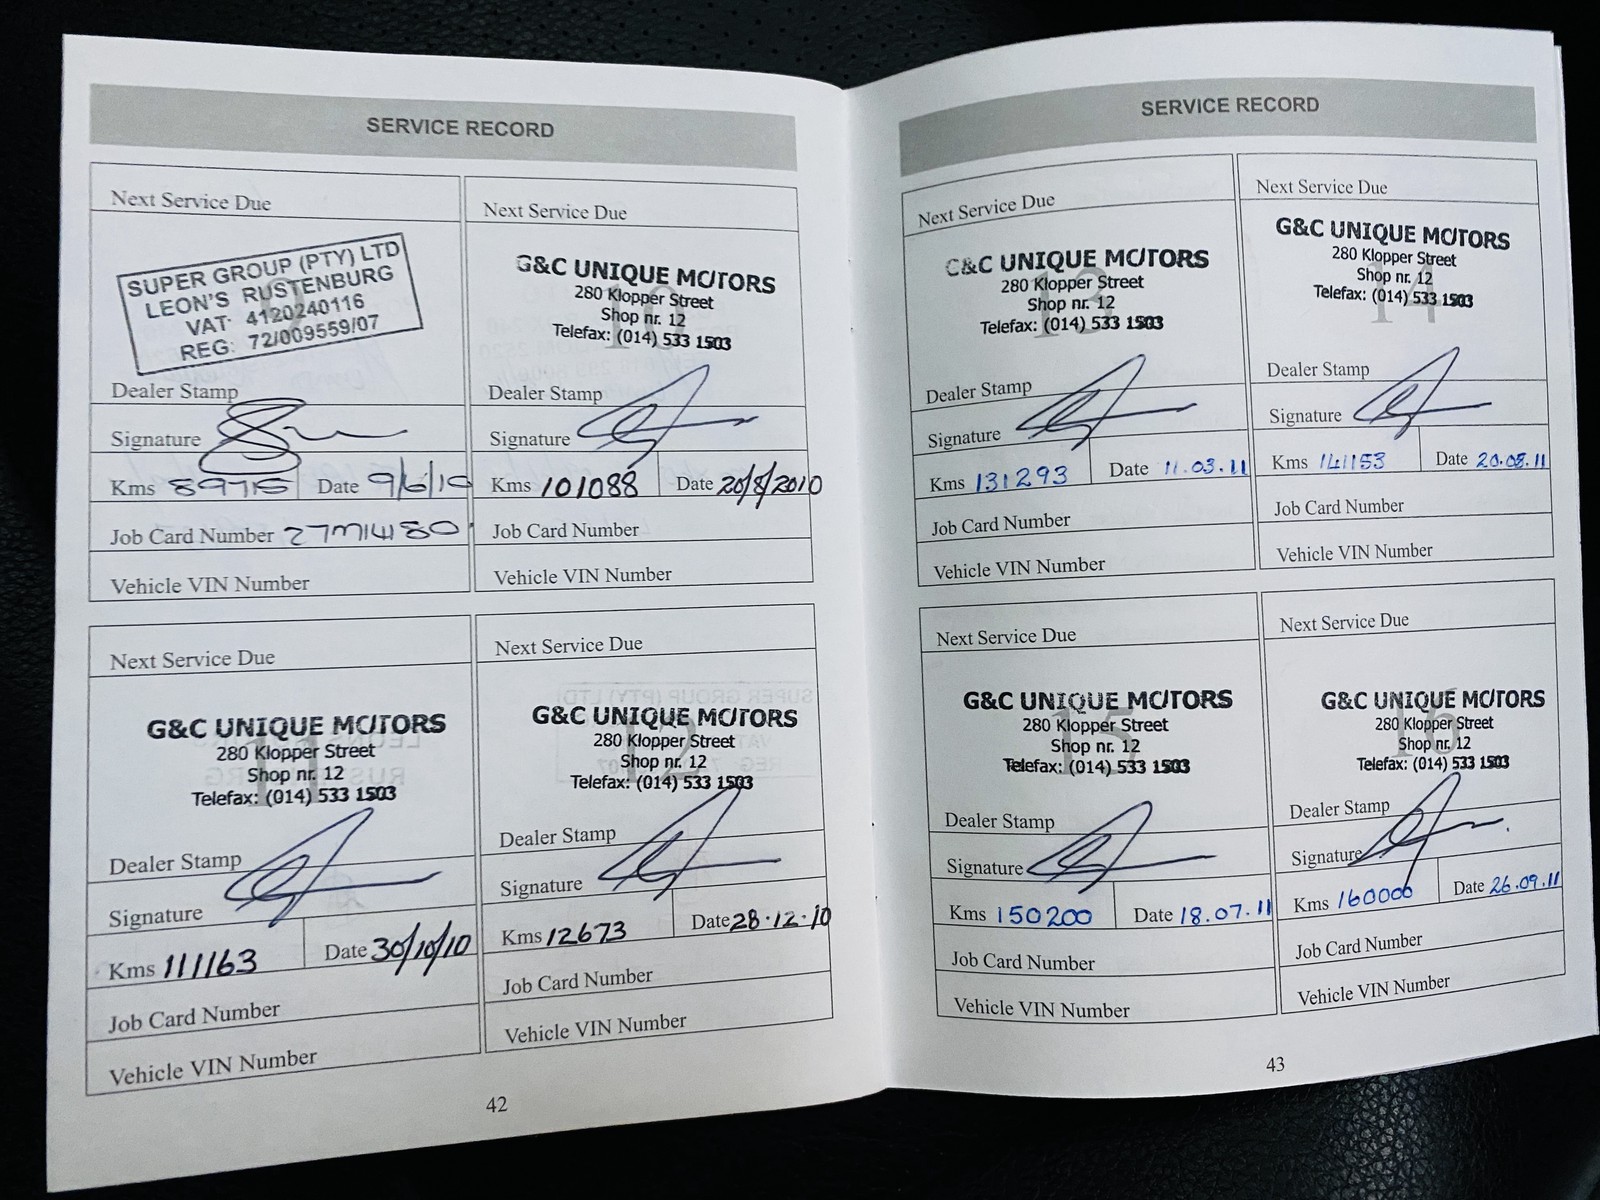 SERVICE RECORD
Next Service Due
SUPER GROUP (PTY) LTD
LEON'S RUSTENBURG
VAT: 4120240116
REG: 72/009559/07
Dealer Stamp
Signature
Kms 89715 Date 9/6/10
Job Card Number
Vehicle VIN Number
Next Service Due
10
G&C UNIQUE MOTORS
280 Klopper Street
Shop nr. 12
Telefax: (014) 533 1503
Dealer Stamp
Signature
Kms 101088 Date 20/8/2010
Job Card Number
Vehicle VIN Number
Next Service Due
11
G&C UNIQUE MOTORS
280 Klopper Street
Shop nr. 12
Telefax: (014) 533 1503
Dealer Stamp
Signature
Kms 111163 Date 30/10/10
Job Card Number
Vehicle VIN Number
Next Service Due
12
G&C UNIQUE MOTORS
280 Klopper Street
Shop nr. 12
Telefax: (014) 533 1503
Dealer Stamp
Signature
Kms 12673 Date 28.12.10
Job Card Number
Vehicle VIN Number
42
SERVICE RECORD
Next Service Due
13
G&C UNIQUE MOTORS
280 Klopper Street
Shop nr. 12
Telefax: (014) 533 1503
Dealer Stamp
Signature
Kms 131293 Date 11.03.11
Job Card Number
Vehicle VIN Number
Next Service Due
14
G&C UNIQUE MOTORS
280 Klopper Street
Shop nr. 12
Telefax: (014) 533 1503
Dealer Stamp
Signature
Kms 141153 Date 20.05.11
Job Card Number
Vehicle VIN Number
Next Service Due
15
G&C UNIQUE MOTORS
280 Klopper Street
Shop nr. 12
Telefax: (014) 533 1503
Dealer Stamp
Signature
Kms 150200 Date 18.07.11
Job Card Number
Vehicle VIN Number
Next Service Due
16
G&C UNIQUE MOTORS
280 Klopper Street
Shop nr. 12
Telefax: (014) 533 1503
Dealer Stamp
Signature
Kms 160000 Date 26.09.11
Job Card Number
Vehicle VIN Number
43